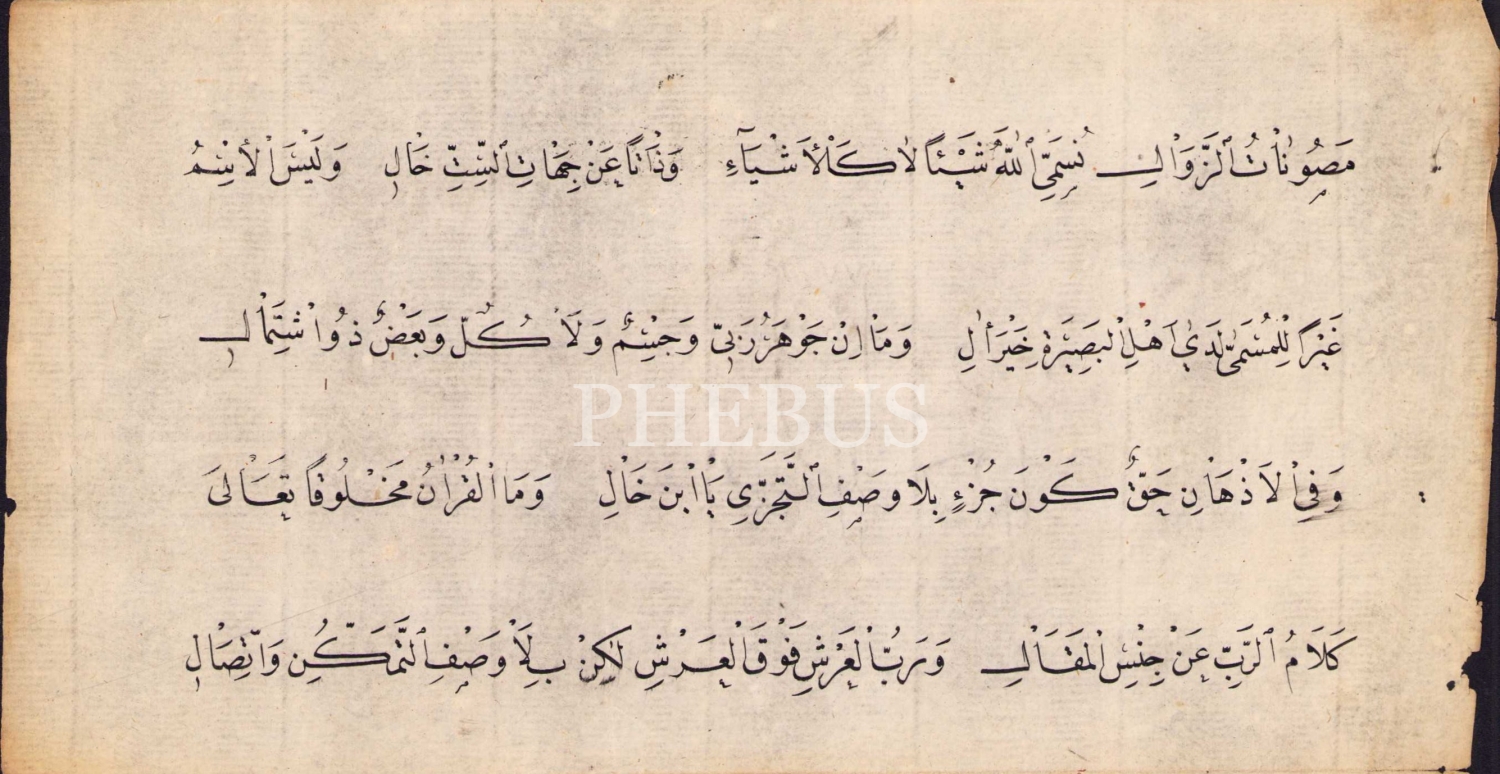 مَصُونَاتُ الزَّوَالِ نُسَمِّي اللّٰهَ شَيْئًا لَا كَالْأَشْيَاءِ وَذَاتًا عَنْ جِهَاتِ السِّتِّ خَالِ وَلَيْسَ الْاِسْمُ
غَيْرًا لِلْمُسَمَّى لَدَي اَهْلِ الْبَصِيرَةِ خَيْرَ أٰلِ وَمَا اِنْ جَوْهَرٌ رَبِّيّ وَجِسْمٌ وَلَا كُلٌّ وَبَعْضٌ ذُو اشْتِمَالِ
وَفِي الْاَذْهَانِ حَقٌّ كَوْنَ جُزْءٍ بِلَا وَصْفِ التَّجَزِّي يَا ابْنَ خَالِ وَمَا الْقُرْاٰنُ مَخْلُوقًا تَعَالَى
كَلَامُ الرَّبِّ عَنْ جِنْسِ الْمَقَالِ وَرَبُّ الْعَرْشِ فَوْقَ الْعَرْشِ لٰكِنْ بِلَا وَصْفِ التَّمَكُّنِ وَاتِّصَالِ
PHEBUS